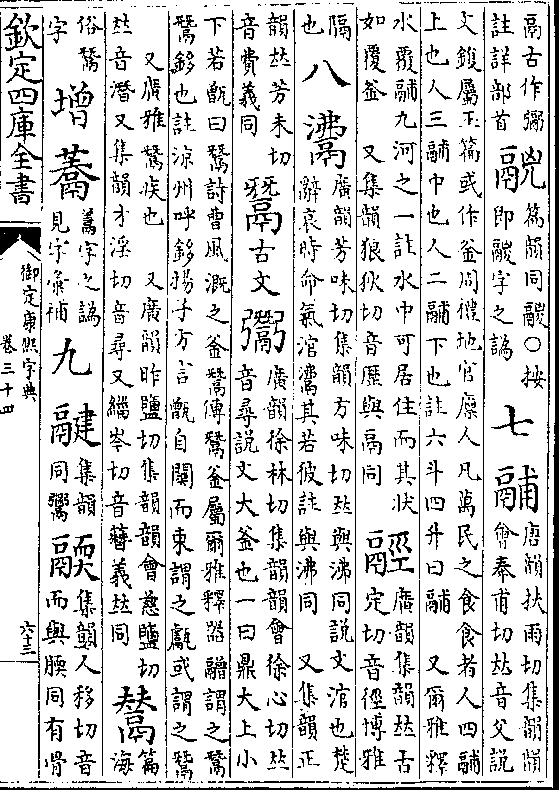 鬲古作䰜
註詳部首
篇韻同䰝○按
即䰝字之譌
七
鬴
唐韻扶雨切集韻韻
會奉甫切𠀤音父說
文鍑屬玉篇或作釜周禮地官廩人凡萬民之食食者人四鬴
上也人三鬴中也人二鬴下也註六斗四升曰鬴 又爾雅釋
水覆鬴九河之一註水中可居住而其狀
如覆釜 又集韻狼狄切音歷與鬲同
廣韻集韻𠀤古
定切音徑博雅
隔
也
八
廣韻芳味切集韻方味切𠀤與沸同說文涫也楚
辭哀時命氣涫其若彼註與沸同 又集韻正
韻𠀤芳未切
音費義同
鬵
古文
廣韻徐林切集韻韻會徐心切𠀤
音尋說文大釜也一曰鼎大上小
下若甑曰鬵詩曹風溉之釜鬵傳鬵釜屬爾雅釋器䰝謂之鬵
鬵鉹也註涼州呼鉹揚子方言甑自關而東謂之甗或謂之鬵
又廣雅鬵疾也 又廣韻昨鹽切集韻韻會慈鹽切
𠀤音潛又集韻才淫切音尋又緇岑切音簪義𠀤同
篇
海
俗鬵
字
增
字之譌
見字彙補
九
集韻
同鬻
集韻人移切音
而與腝同有骨
欽定四庫全書
御定康熙字典
卷三十四
六十三